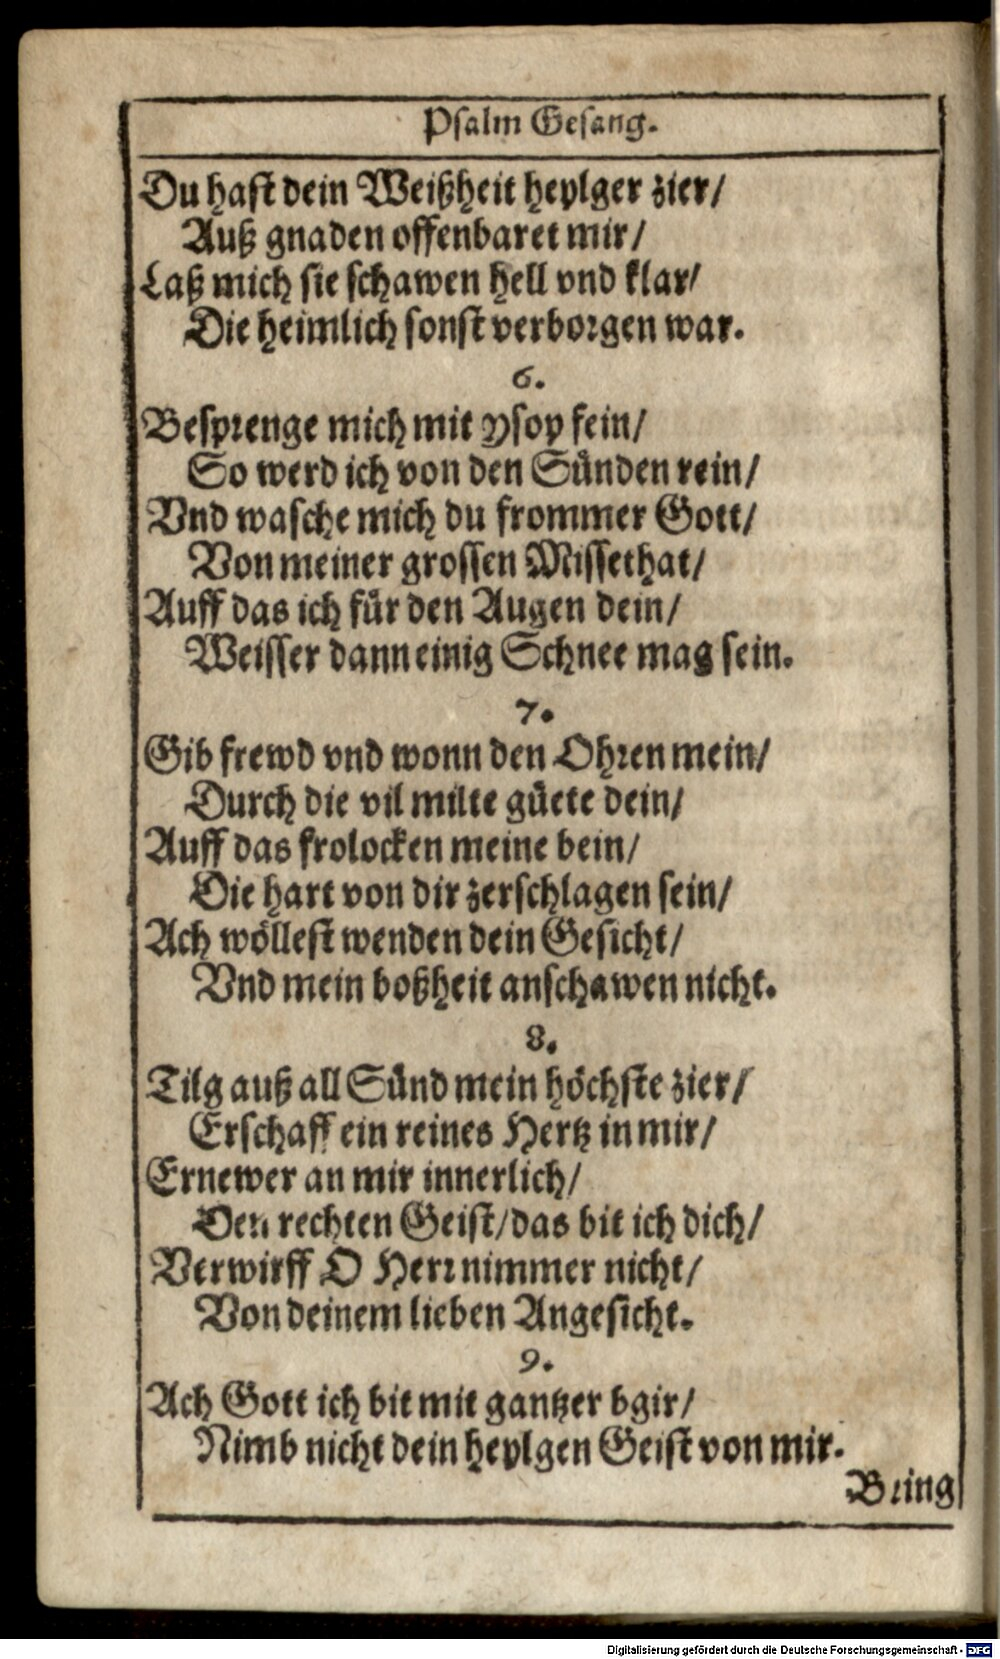 Psalm Gesang.
Du hast dein Weißheit heylger zier/
Auß gnaden offenbaret mir/
Laß mich sie schawen hell vnd klar/
Die heimlich sonst verborgen war.
6.
Besprenge mich mit ysop fein/
So werd ich von den Sünden rein/
Vnd wasche mich du frommer Gott/
Von meiner grossen Missethat/
Auff das ich für den Augen dein/
Weisser dann einig Schnee mag sein.
7.
Gib frewd vnd wonn den Ohren mein/
Durch die vil milte güete dein/
Auff das frolocken meine bein/
Die hart von dir zerschlagen sein/
Ach wöllest wenden dein Gesicht/
Vnd mein boßheit anschawen nicht.
8.
Tilg auß all Sünd mein höchste zier/
Erschaff ein reines Hertz in mir/
Ernewer an mir innerlich/
Den rechten Geist/das bit ich dich/
Verwirff O Herr nimmer nicht/
Von deinem lieben Angesicht.
9.
Ach Gott ich bit mit gantzer bgir/
Nimb nicht dein heylgen Geist von mir.
Bring
Digitalisierung gefördert durch die Deutsche Forschungsgemeinschaft - DFG